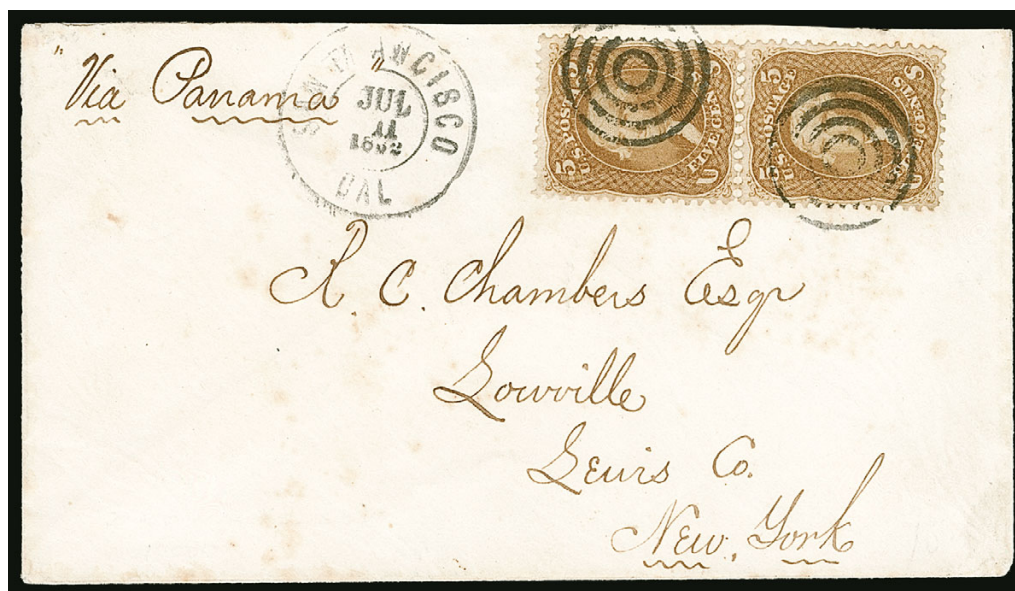 "Via Panama"
SAN FRANCISCO
JUL
11
1862
CAL
U.S. POSTAGE
FIVE CENTS
5 5
U S
U.S. POSTAGE
FIVE CENTS
5 5
U S
R. C. Chambers Esqr
Lowville
Lewis Co.
New York